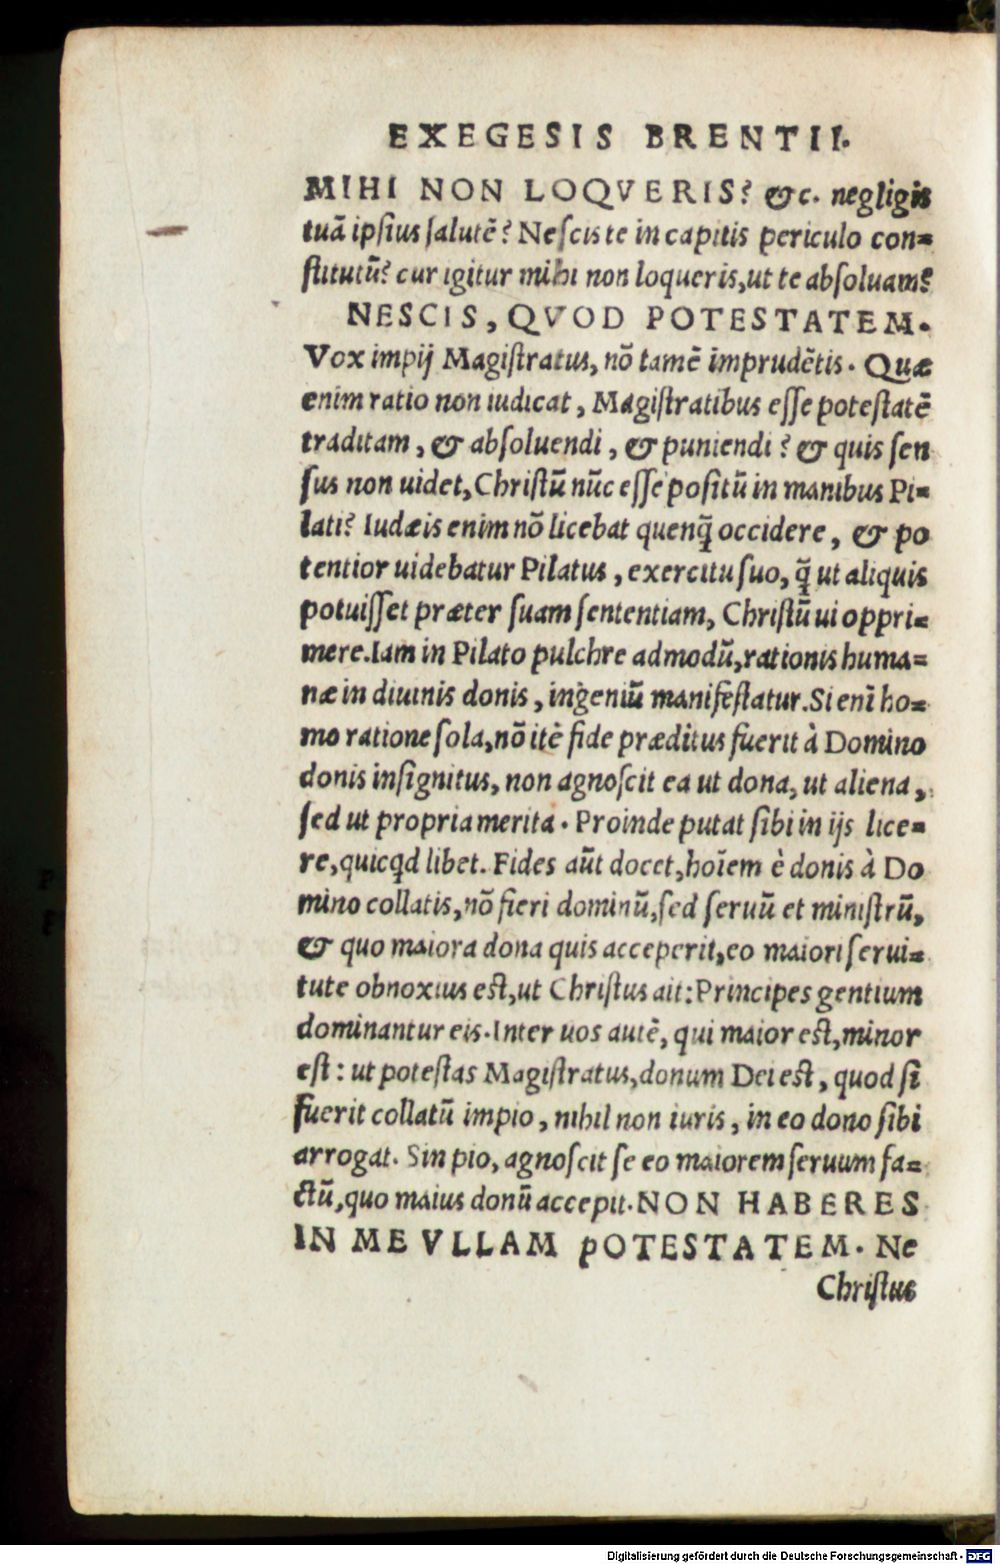 EXEGESIS BRENTII.
MIHI NON LOQVERIS? &c. negligis
tuā ipsius salutē? Nescis te in capitis periculo con=
stitutū? cur igitur mihi non loqueris, ut te absoluam?
NESCIS, QVOD POTESTATEM.
Vox impij Magistratus, nō tamē imprudētis. Quæ
enim ratio non iudicat, Magistratibus esse potestatē
traditam, & absoluendi, & puniendi? & quis sen
sus non uidet, Christū nūc esse positū in manibus Pi=
lati? Iudæis enim nō licebat quenq̄ occidere, & po
tentior uidebatur Pilatus, exercitu suo, q̄ ut aliquis
potuisset præter suam sententiam, Christū ui oppri=
mere. Iam in Pilato pulchre admodū, rationis huma=
næ in diuinis donis, ingeniū manifestatur. Si enī ho=
mo ratione sola, nō itē fide præditus fuerit à Domino
donis insignitus, non agnoscit ea ut dona, ut aliena,
sed ut propria merita. Proinde putat sibi in ijs lice=
re, quicqd libet. Fides aūt docet, hoīem è donis à Do
mino collatis, nō fieri dominū, sed seruū et ministrū,
& quo maiora dona quis acceperit, eo maiori serui=
tute obnoxius est, ut Christus ait: Principes gentium
dominantur eis. Inter uos autē, qui maior est, minor
est: ut potestas Magistratus, donum Dei est, quod si
fuerit collatū impio, nihil non iuris, in eo dono sibi
arrogat. Sin pio, agnoscit se eo maiorem seruum fa=
ctū, quo maius donū accepit. NON HABERES
IN ME VLLAM POTESTATEM. Ne
Christus
Digitalisierung gefördert durch die Deutsche Forschungsgemeinschaft - DFG